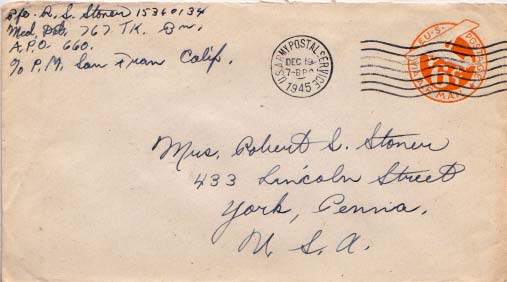 Pfc. R. S. Stoner 15360134
Med. Det. 767 TK. Bn.
A.P.O. 660.
c/o P.M. San Fran Calif.
U.S. ARMY POSTAL SERVICE
DEC 19
1945
U.S. POSTAGE
AIR MAIL
6¢
Mrs. Robert S. Stoner
433 Lincoln Street
York, Penna.
U. S. A.